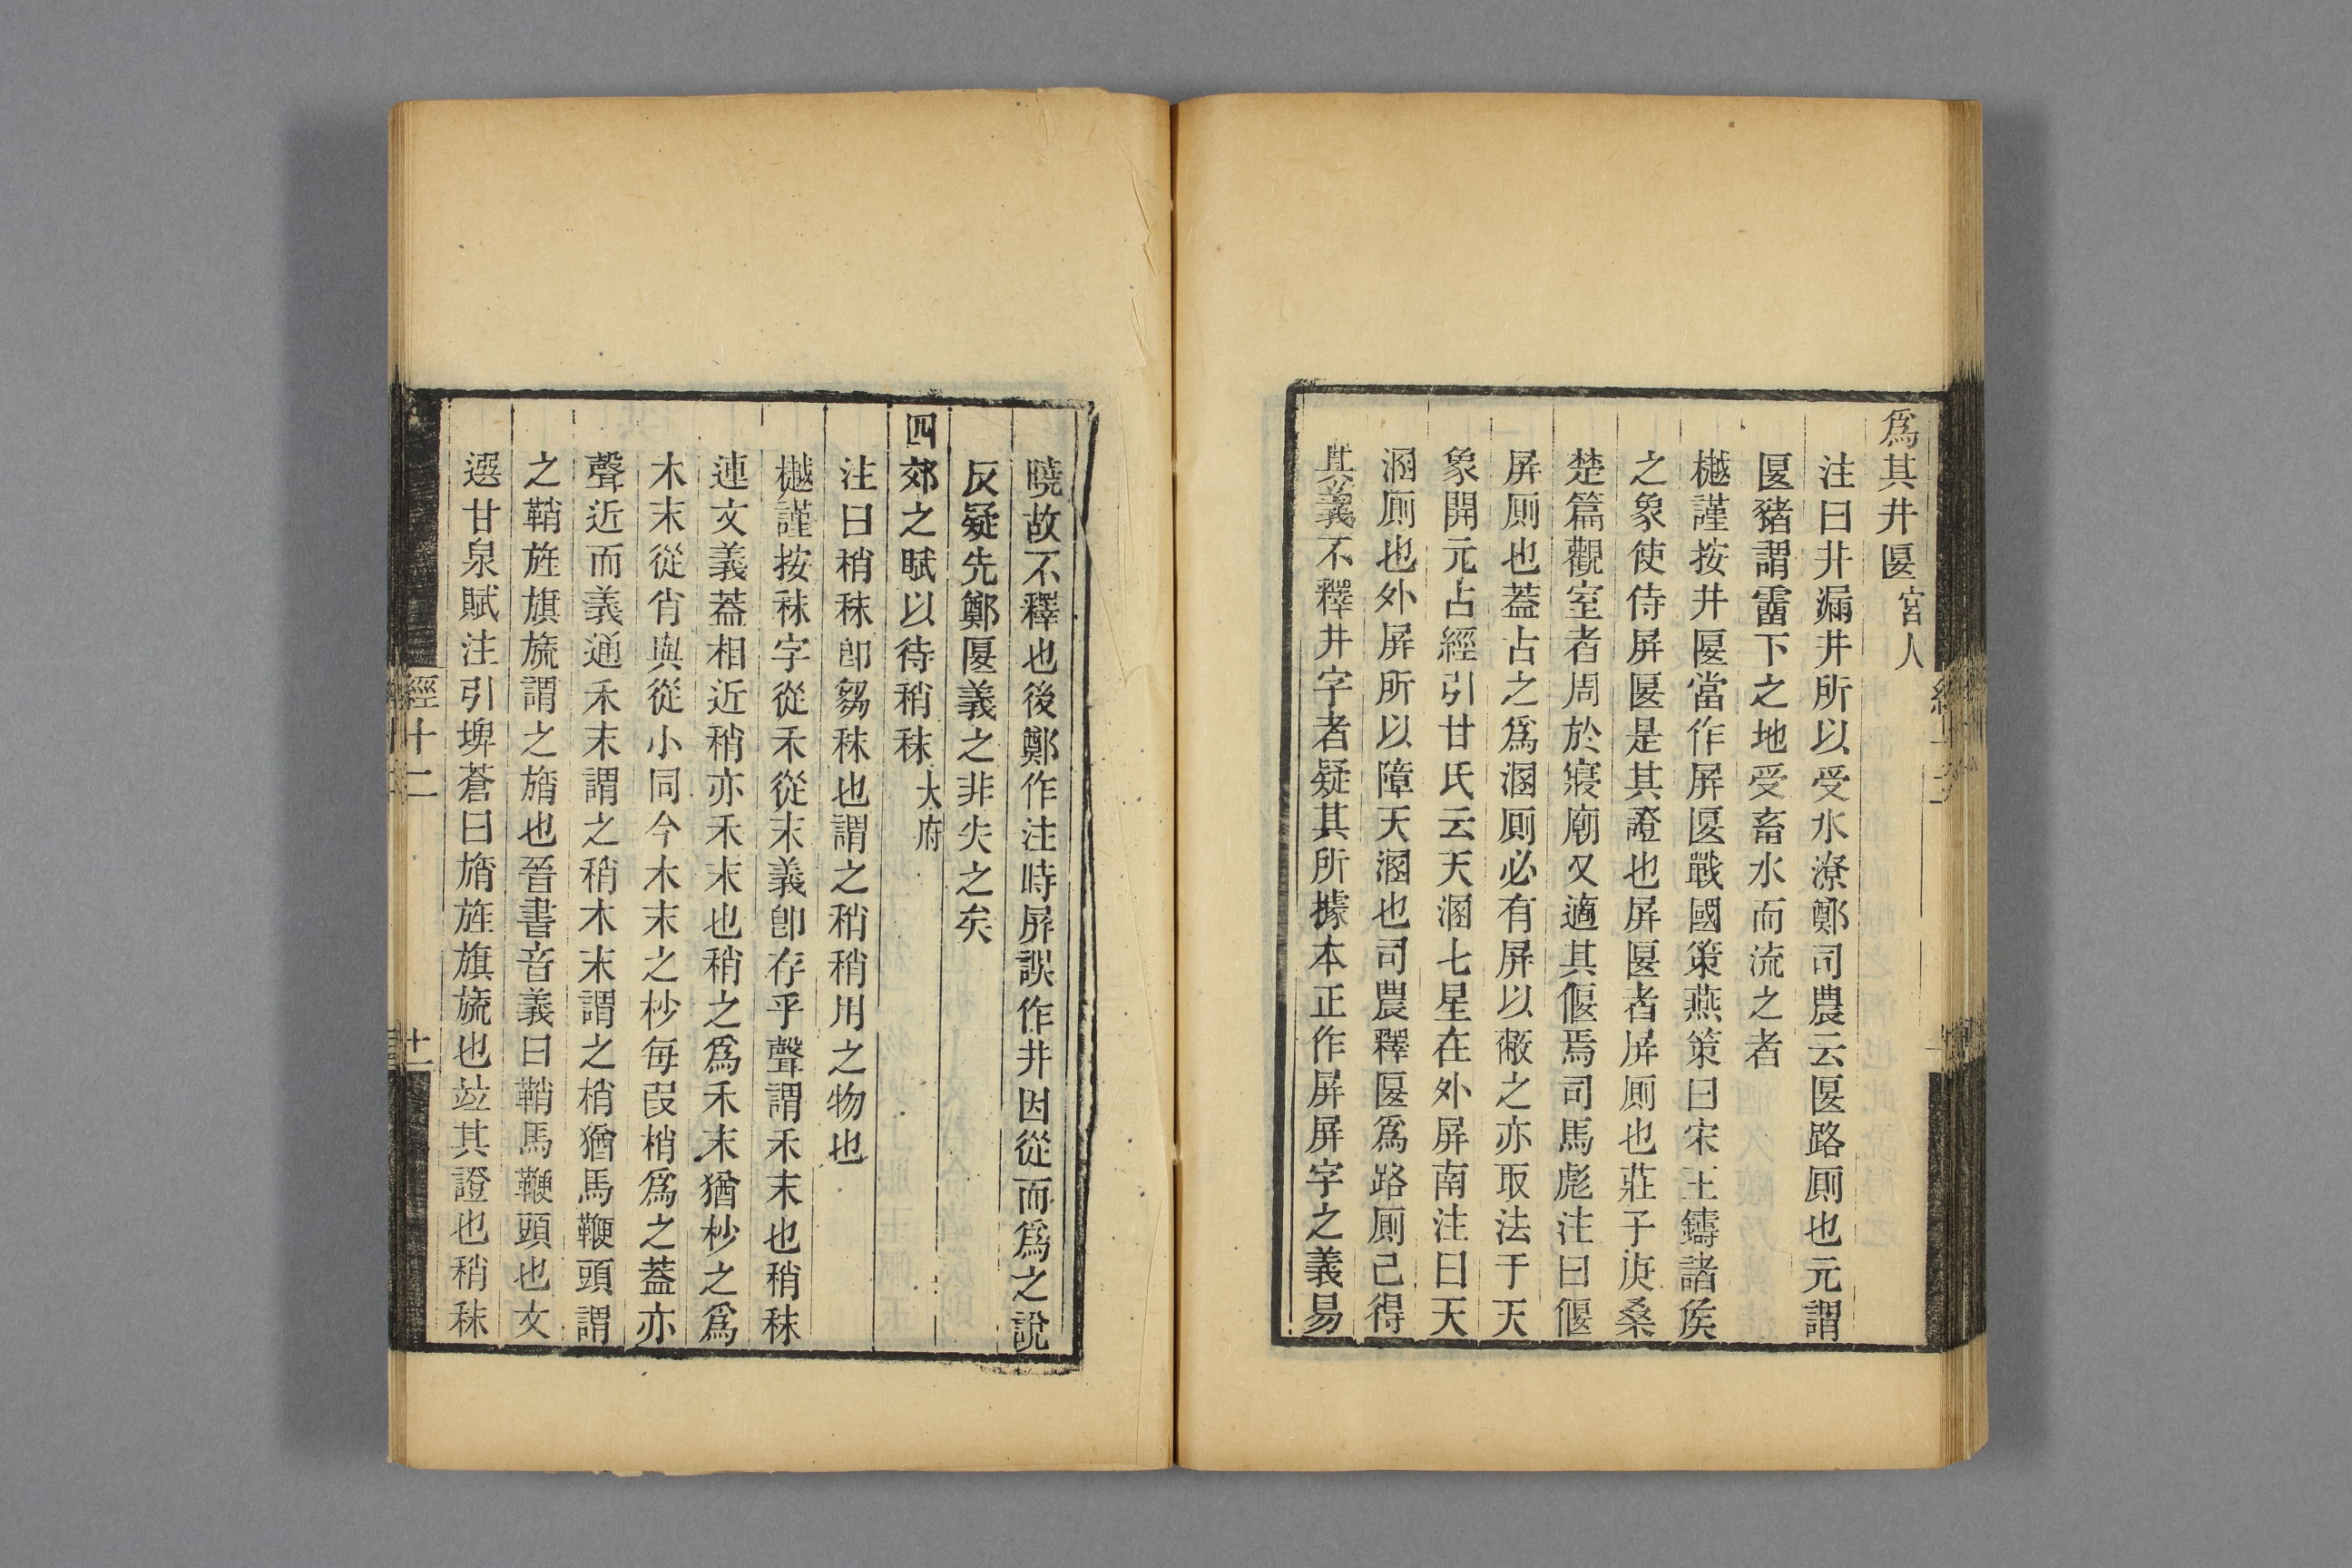 爲其井匽宮人
注曰井漏井所以受水潦鄭司農云匽路厠也元謂
匽豬謂霤下之地受畜水而流之者
樾謹按井匽當作屏匽戰國策燕策曰宋王鑄諸矦
之象使侍屏匽是其證也屏匽者屏厠也莊子庚桑
楚篇觀室者周於寢廟又適其偃焉司馬彪注曰偃
屏厠也葢占之爲溷厠必有屏以蔽之亦取法于天
象開元占經引甘氏云天溷七星在外屏南注曰天
溷厠也外屏所以障天溷也司農釋匽爲路厠己得
其義不釋井字者疑其所據本正作屏屏字之義易
曉故不釋也後鄭作注時屏誤作井因從而爲之說
反疑先鄭匽義之非失之矣
四郊之賦以待稍秣大府
注曰稍秣卽芻秣也謂之稍稍用之物也
樾謹按秣字從禾從末義卽存乎聲謂禾末也稍秣
連文義葢相近稍亦禾末也稍之爲禾末猶杪之爲
木末從肖與從小同今木末之杪每叚梢爲之葢亦
聲近而義通禾末謂之稍木末謂之梢猶馬鞭頭謂
之鞘旌旗旒謂之旓也晉書音義曰鞘馬鞭頭也文
選甘泉賦注引埤蒼曰旓旌旗旒也竝其證也稍秣
經十二
十一